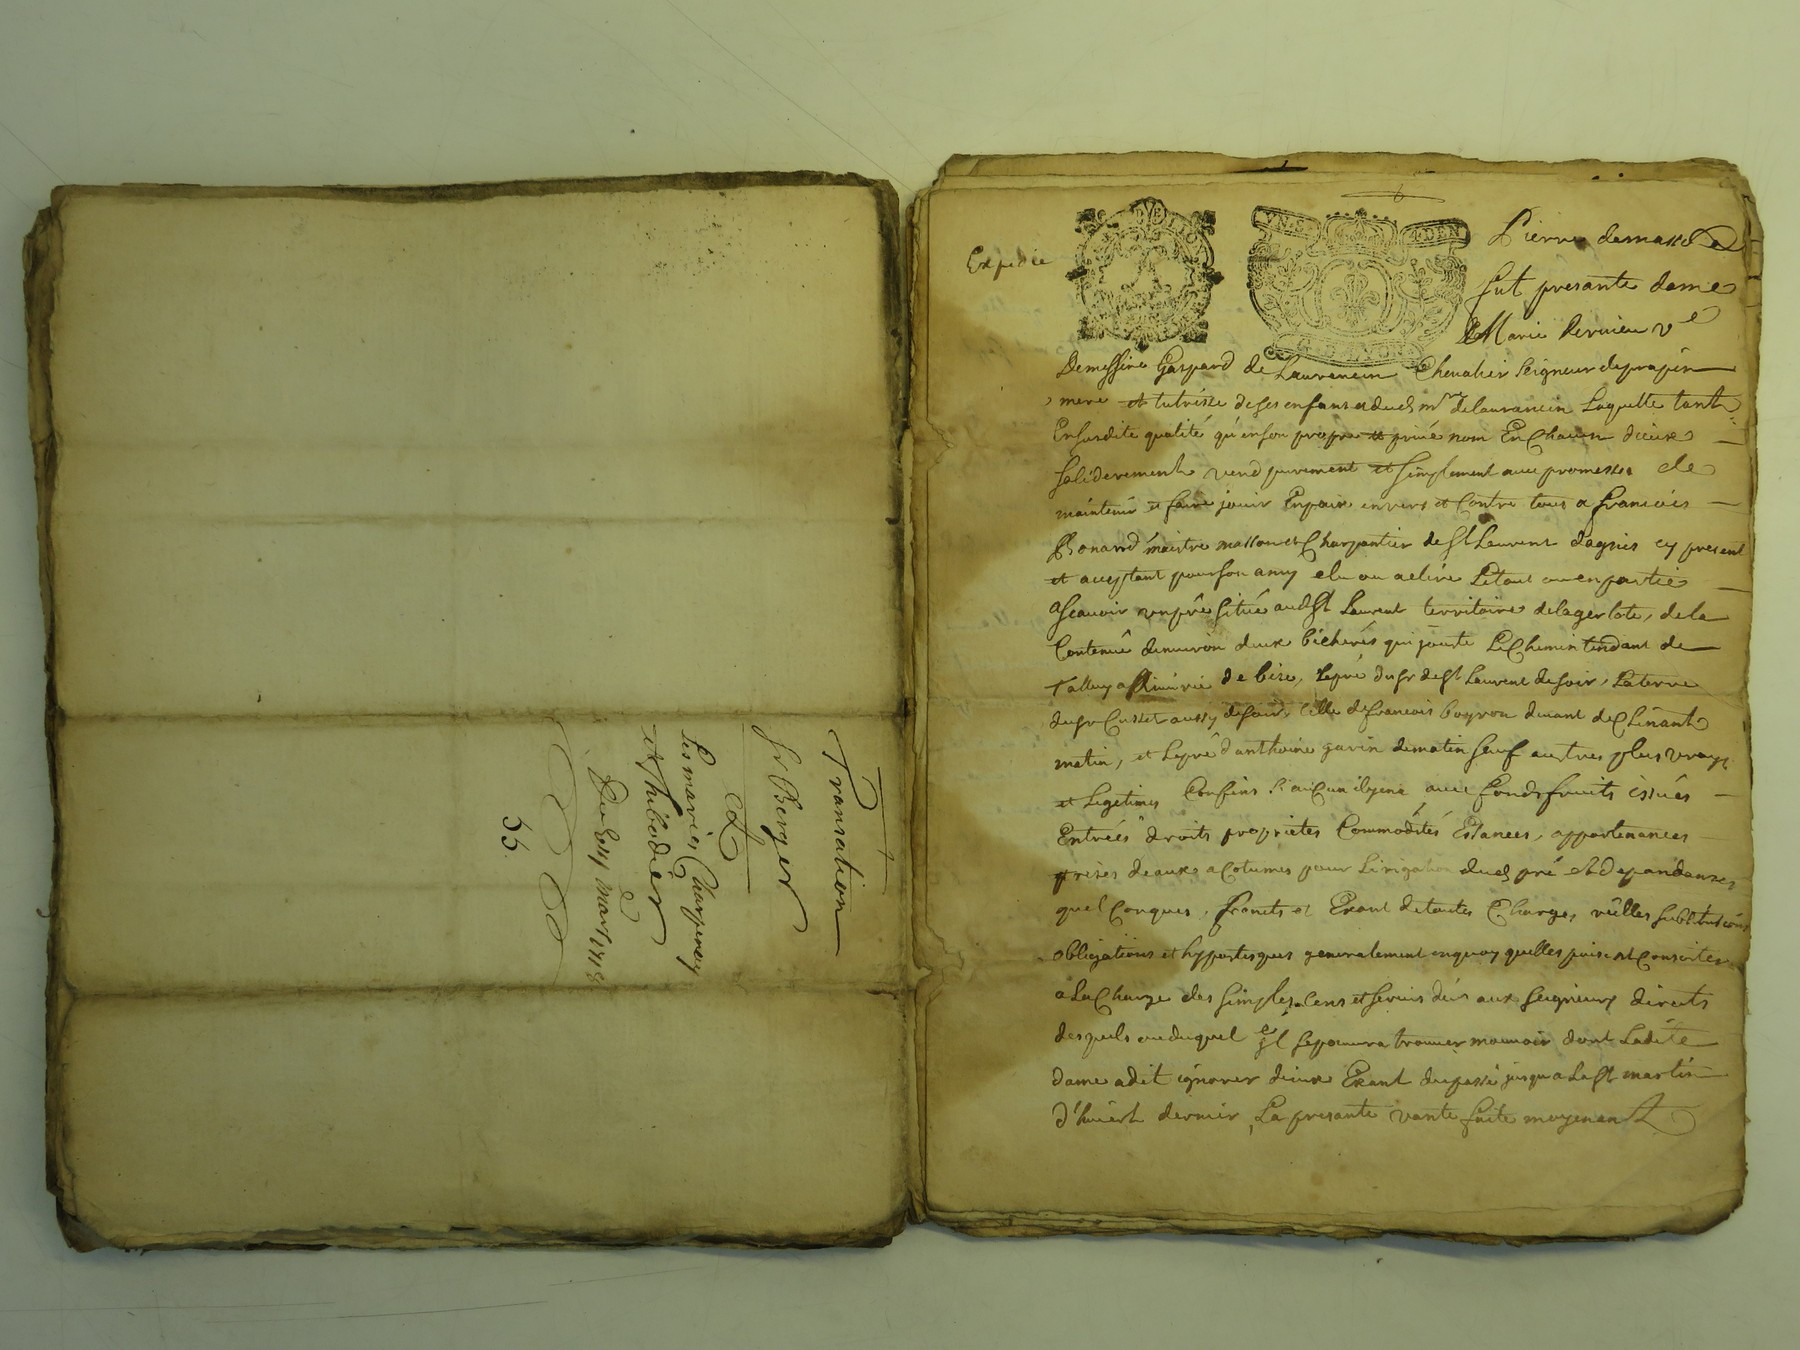 Transation
Sr Berger
et
Les mariés Charpenay
et thibodier
Du mars 1713
55.
Expedié
Pierre demasso
fut presante dame
Marie Dervieu ve
De messire Gaspard de Laurencin Chevalier Seigneur de prapin
mere et tutrisse de ses enfans et dud mr de laurancin Laquelle tant
En susdite qualité qu'en son propre et privé nom En chacun d'ieux
soliderement vend purement et simplement avec promesses de
maintenir et faire jouir En paix envers et Contre tous a francois
Bonard maistre masson et Charpantier de St Laurent dagnies cy present
et acceptant pour son amy elu ou a elire Le tout ou en partie
ascavoir un pré situé aud St Laurent territoire de la gerlote, de la
Contenue denviron deux bicherés qui jouste Le Chemin tendant de
Talluy a Rivirie de bise, Le pré du sr de St Laurent de soir, La terre
du sr Cusset aussy de soir, Celle de francois boyron divant de
matin, et Le pré d'anthoine gavin de matin sauf autres plus vrays
et Legetimes Confins avec fonds fruits issues
Entrées droits proprietes Commodités Estances, appartenances
prises deaux acotumes pour Lirigation dud pré et dependances
quel Conques, francts et Exant de toutes Charges, substitutions
obligations et hypoteques generalement en quoy quelles puissent Consister
a La Charge des simples Cens et servis deus aux seigneurs directs
desquels ou duquel il se pourra trouver mouvoir dont Ladite
dame a dit ignorer d'ieux Exant du passé jusqu a La St martin
d'hivert dernier, La presante vante faite moyenant